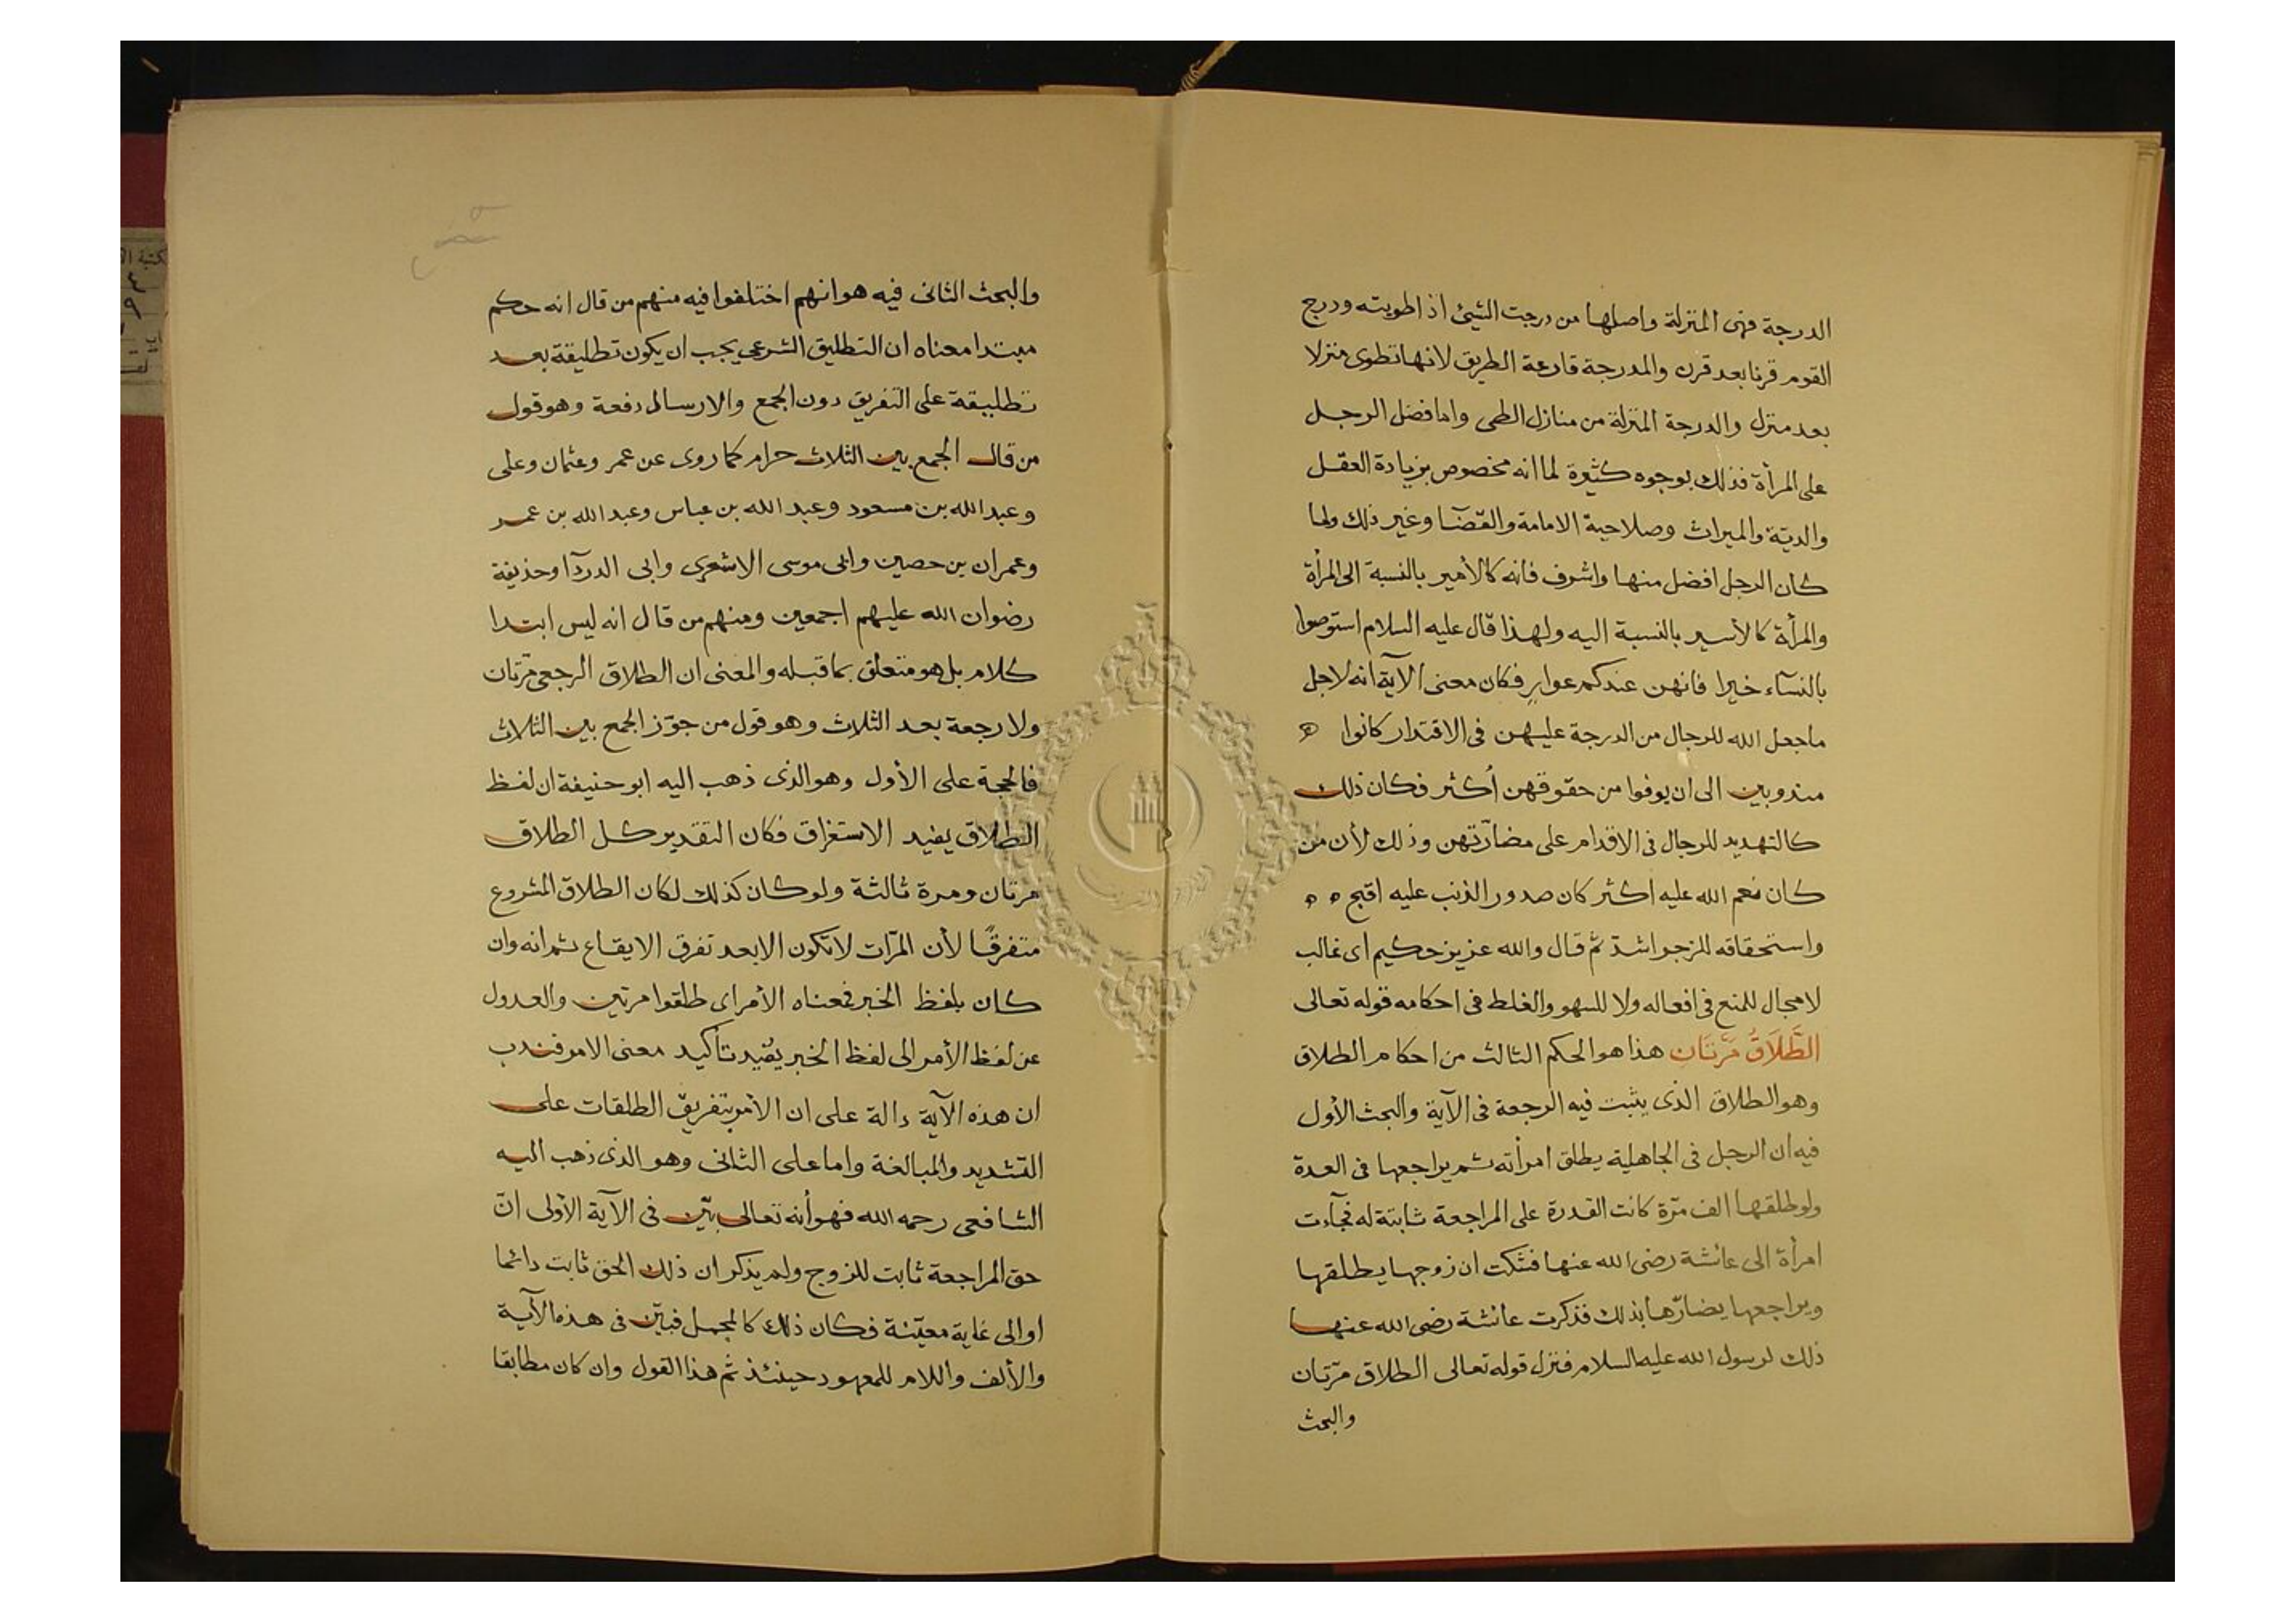 الدرجة فهى المنزلة واصلها من درجت الشيئ اذ اطويته ودرج
القوم قرنا بعد قرن والمدرجة قارعة الطريق لانها تطوى منزلا
بعد منزل والدرجة المنزلة من منازل الطى واما فضل الرجل
على المرأة فذلك بوجوه كثيرة لما انه مخصوص بزيادة العقل
والديّة والميراث وصلاحية الامامة والقضآ وغير ذلك ولما
كان الرجل افضل منها واشرف فانه كالأمير بالنسبة الى المرأة
والمرأة كالأسير بالنسبة اليه ولهذا قال عليه السلام استوصوا
بالنسآء خيرا فانهن عندكم عوارٍ فكان معنى الآية انه لاجل
ماجعل الله للرجال من الدرجة عليهن فى الاقتدار كانوا
مندوبين الى ان يوفوا من حقوقهن أكثر فكان ذلك
كالتهديد للرجال فى الاقدام على مضارّتهن وذلك لأن من
كان نعم الله عليه اكثر كان صدور الذنب عليه اقبح
واستحقاقه للزجر اشدّ ثمّ قال والله عزيز حكيم اى غالب
لا مجال للمنع فى افعاله ولا للسهو والغلط فى احكامه قوله تعالى
الطَّلَاقُ مَرَّتَانِ هذا هو الحكم الثالث من احكام الطلاق
وهو الطلاق الذى يثبت فيه الرجعة فى الآية والبحث الأول
فيه ان الرجل فى الجاهلية يطلق امرأته ثم يراجعها فى العدة
ولو طلقها الف مرّة كانت القدرة على المراجعة ثابتة له فجآءت
امرأة الى عائشة رضى الله عنها فشكت ان زوجها يطلقها
ويراجعها يضارّها بذلك فذكرت عائشة رضى الله عنها
ذلك لرسول الله عليه السلام فنزل قوله تعالى الطلاق مرّتان
والبحث
والبحث الثانى فيه هو انهم اختلفوا فيه منهم من قال انه حكم
مبتدا معناه ان التطليق الشرعى يجب ان يكون تطليقة بعد
تطليقة على التفريق دون الجمع والارسال دفعة وهو قول
من قال الجمع بين الثلاث حرام كما روى عن عمر وعثمان وعلى
وعبد الله بن مسعود وعبد الله بن عباس وعبد الله بن عمر
وعمران بن حصين وابى موسى الاشعرى وابى الدردآ وحذيفة
رضوان الله عليهم اجمعين ومنهم من قال انه ليس ابتدا
كلام بل هو متعلق بما قبله والمعنى ان الطلاق الرجعى مرّتان
ولا رجعة بعد الثلاث وهو قول من جوّز الجمع بين الثلاث
فالحجة على الأول وهو الذى ذهب اليه ابو حنيفة ان لفظ
الطلاق يفيد الاستغراق فكان التقدير كل الطلاق
مرتان ومرة ثالثة ولو كان كذلك لكان الطلاق المشروع
متفرقًا لأن المرّات لا تكون الا بعد تفرق الايقاع ثم انه وان
كان بلفظ الخبر فمعناه الأمر اى طلقوا مرتين والعدول
عن لفظ الأمر الى لفظ الخبر يفيد تأكيد معنى الامر فندب
ان هذه الآية دالة على ان الأمر بتفريق الطلقات على
التشديد والمبالغة واما على الثانى وهو الذى ذهب اليه
الشافعى رحمه الله فهو أنه تعالى بيّن فى الآية الأولى انّ
حق المراجعة ثابت للزوج ولم يذكر ان ذلك الحق ثابت دائما
او الى غاية معيّنة فكان ذلك كالمجمل فبيّن فى هذه الآية
والألف واللام للمعهود حينئذ ثم هذا القول وان كان مطابقا